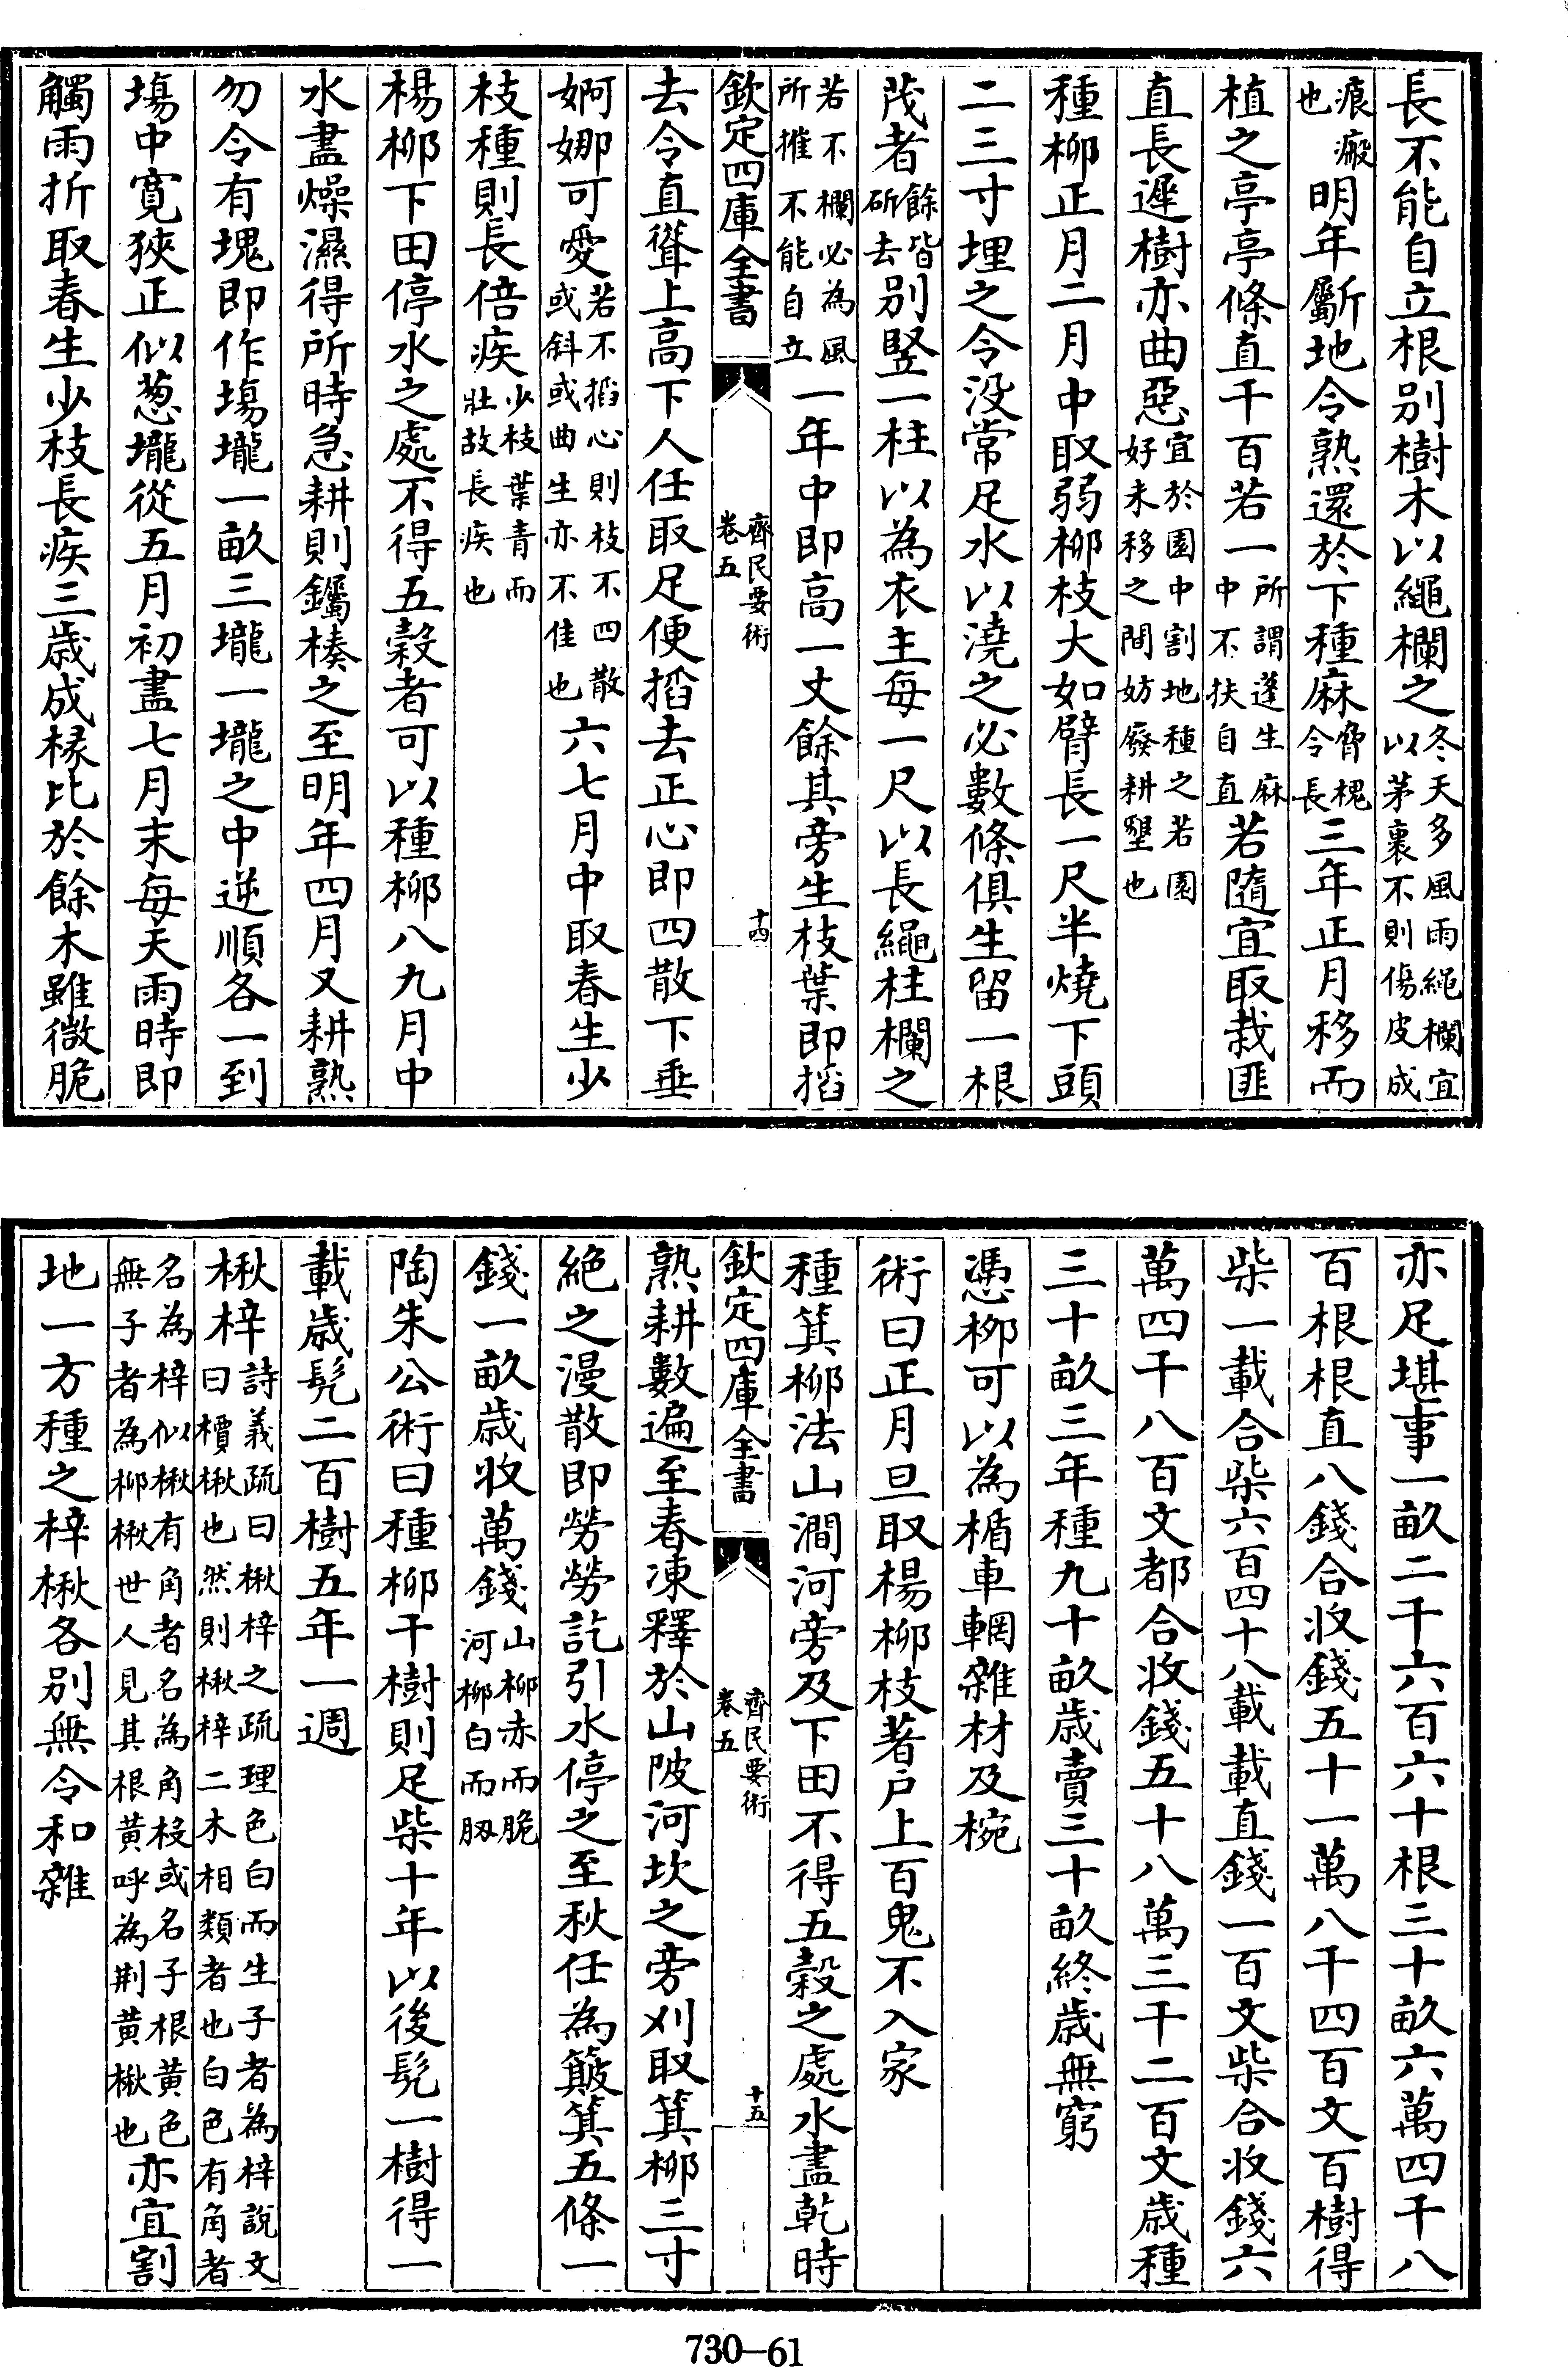 長不能自立根别樹木以繩欄之冬天多風雨繩欄宜以茅裹不則傷皮成
痕瘢也明年斸地令熟還於下種麻脅槐令長三年正月移而
植之亭亭條直千百若一所謂蓬生麻中不扶自直若隨宜取栽匪
直長遲樹亦曲惡宜於園中割地種之若園好未移之間妨廢耕墾也
種柳正月二月中取弱柳枝大如臂長一尺半燒下頭
二三寸埋之令没常足水以澆之必數條俱生留一根
茂者餘皆斫去别竪一柱以為衣主每一尺以長繩柱欄之
若不欄必為風所摧不能自立一年中即高一丈餘其旁生枝葉即搯
欽定四庫全書 齊民要術 卷五 十四
去令直聳上高下人任取足便搯去正心即四散下垂
婀娜可愛若不搯心則枝不四散或斜或曲生亦不佳也六七月中取春生少
枝種則長倍疾少枝葉青而壯故長疾也
楊柳下田停水之處不得五穀者可以種柳八九月中
水盡燥濕得所時急耕則钃楱之至明年四月又耕熟
勿令有塊即作塲壠一畝三壠一壠之中逆順各一到
塲中寛狹正似葱壠從五月初盡七月末每天雨時即
觸雨折取春生少枝長疾三歲成椽比於餘木雖微脆
亦足堪事一畝二千六百六十根三十畝六萬四千八
百根根直八錢合收錢五十一萬八千四百文百樹得
柴一載合柴六百四十八載載直錢一百文柴合收錢六
萬四千八百文都合收錢五十八萬三千二百文歲種
三十畝三年種九十畝歲賣三十畝終歲無窮
憑柳可以為楯車輞雜材及椀
術曰正月旦取楊柳枝著戶上百鬼不入家
種箕柳法山澗河旁及下田不得五穀之處水盡乾時
欽定四庫全書 齊民要術 卷五 十五
熟耕數遍至春凍釋於山陂河坎之旁刈取箕柳三寸
絶之漫散即勞勞訖引水停之至秋任為簸箕五條一
錢一畝歲收萬錢山柳赤而脆河柳白而肕
陶朱公術曰種柳千樹則足柴十年以後髡一樹得一
載歲髡二百樹五年一週
楸梓詩義疏曰楸梓之疏理色白而生子者為梓說文曰檟楸也然則楸梓二木相類者也白色有角者
名為梓似楸有角者名為角楸或名子根黄色無子者為柳楸世人見其根黄呼為荆黄楸也亦宜割
地一方種之梓楸各别無令和雜
730-61